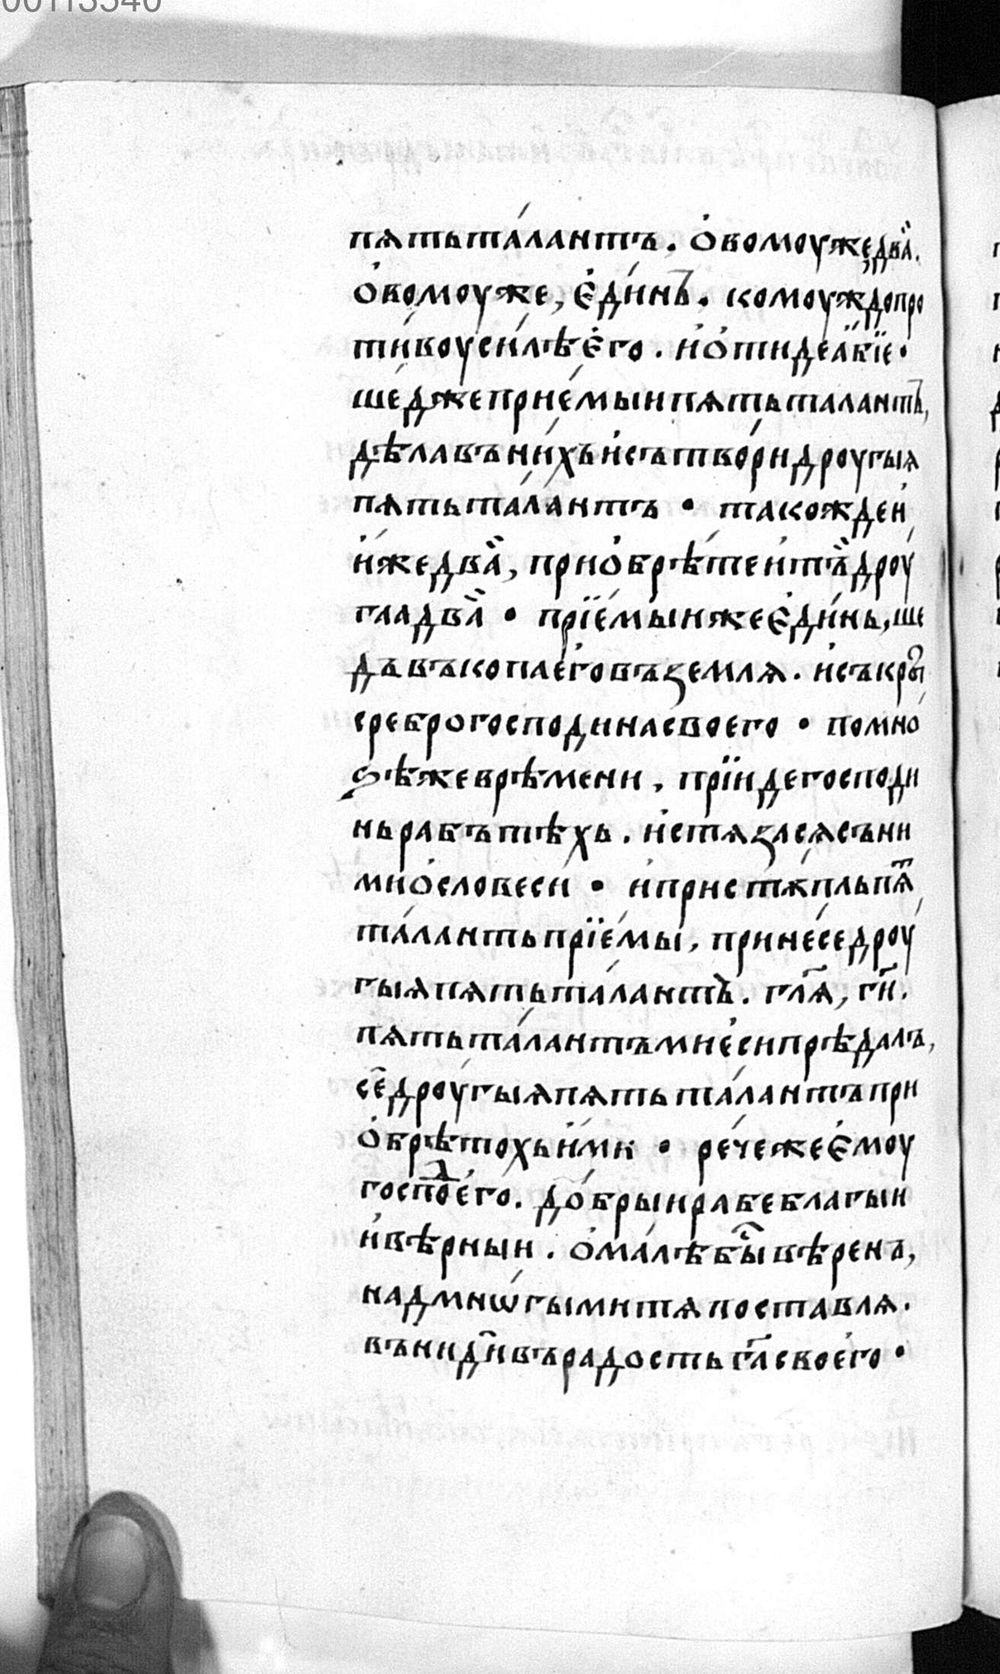 00113540
пѧть та́лантъ. ѻ҆вомоу же два̀.
ѻ҆во́моу же, є҆ди́нъ. комоуждо про
ти́воу си́лѣ є҆го. и҆ ѻ҆тиде а҆́бїе·
ше́д же прие́мыи пѧть талантъ,
дѣ́ла въ ни́хъ и҆ сътво́ри дроугыѧ
пѧть та́ла́нтъ · такожде и҆
и҆́же два̀, приѻ҆брѣ́те и҆ тъ̀ дроу
га́а два̀ · прїе́мыи же є҆ди́нь, ше
дъ въкопа е҆го въ землѧ. и҆ съкры̀
сребро господина своего · по мно
ѕѣ же врѣмени, прїиде господи
нь рабъ тѣхь. и҆ стѧза сѧ съ ни
ми ѻ҆ словеси · и҆ пристѫпль пѧт
та́ланть прїе́мы, прине́се дроу
гыѧ пѧть та́лантъ. гл҃ѧ, ги҃.
пѧть та́лантъ мнѐ си прѣ́далъ,
сѐ дроу́гыѧ пѧть та́лантъ при
ѻ҆брѣ́тохь и҆́ми · рече же є҆моу
госпо́д е҆го. до́брыи рабе благыи
и҆ вѣ́рныи. ѻ҆ ма́лѣ бы̀ вѣ́ренъ,
над мнѡ́гыми тѧ поставлѧ.
въниди въ радость га҃ своего̀ ·